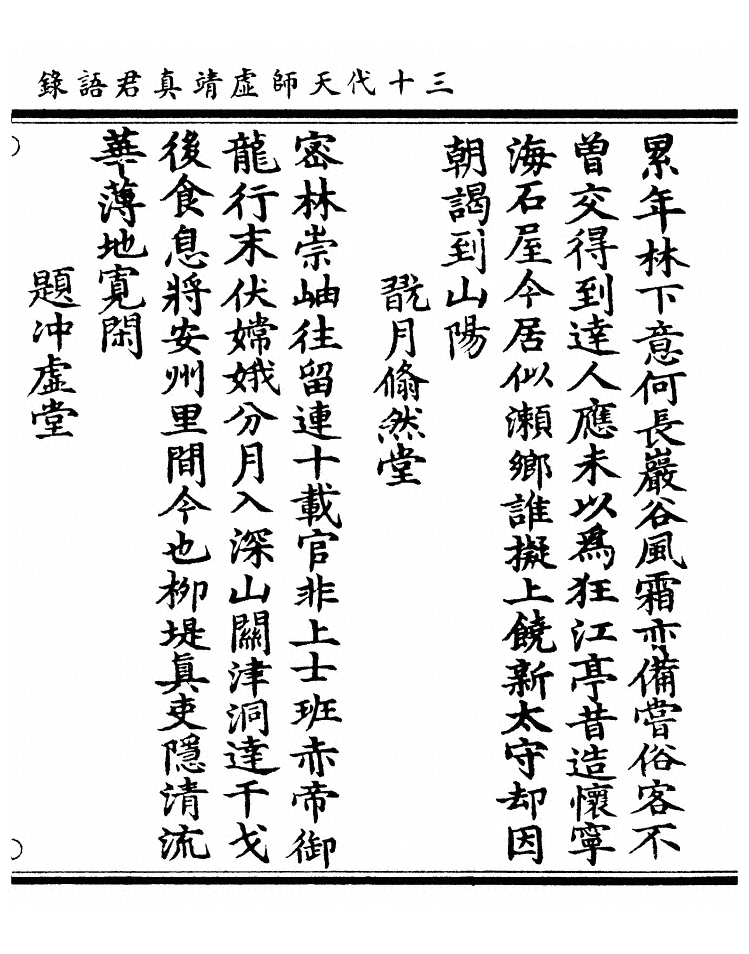 三十代天師虛靖真君語錄
累年林下意何長巖谷風霜亦備嘗俗客不
曽交得到達人應未以爲狂江亭昔造懷寧
海石屋今居似瀨鄉誰擬上饒新太守却因
朝謁到山陽
翫月翛然堂
密林崇岫往留連十載官非上士班赤帝御
龍行末伏嫦娥分月入深山關津洞達干戈
後食息將安州里間今也柳堤真吏隱清流
華薄地寛閑
題冲虛堂